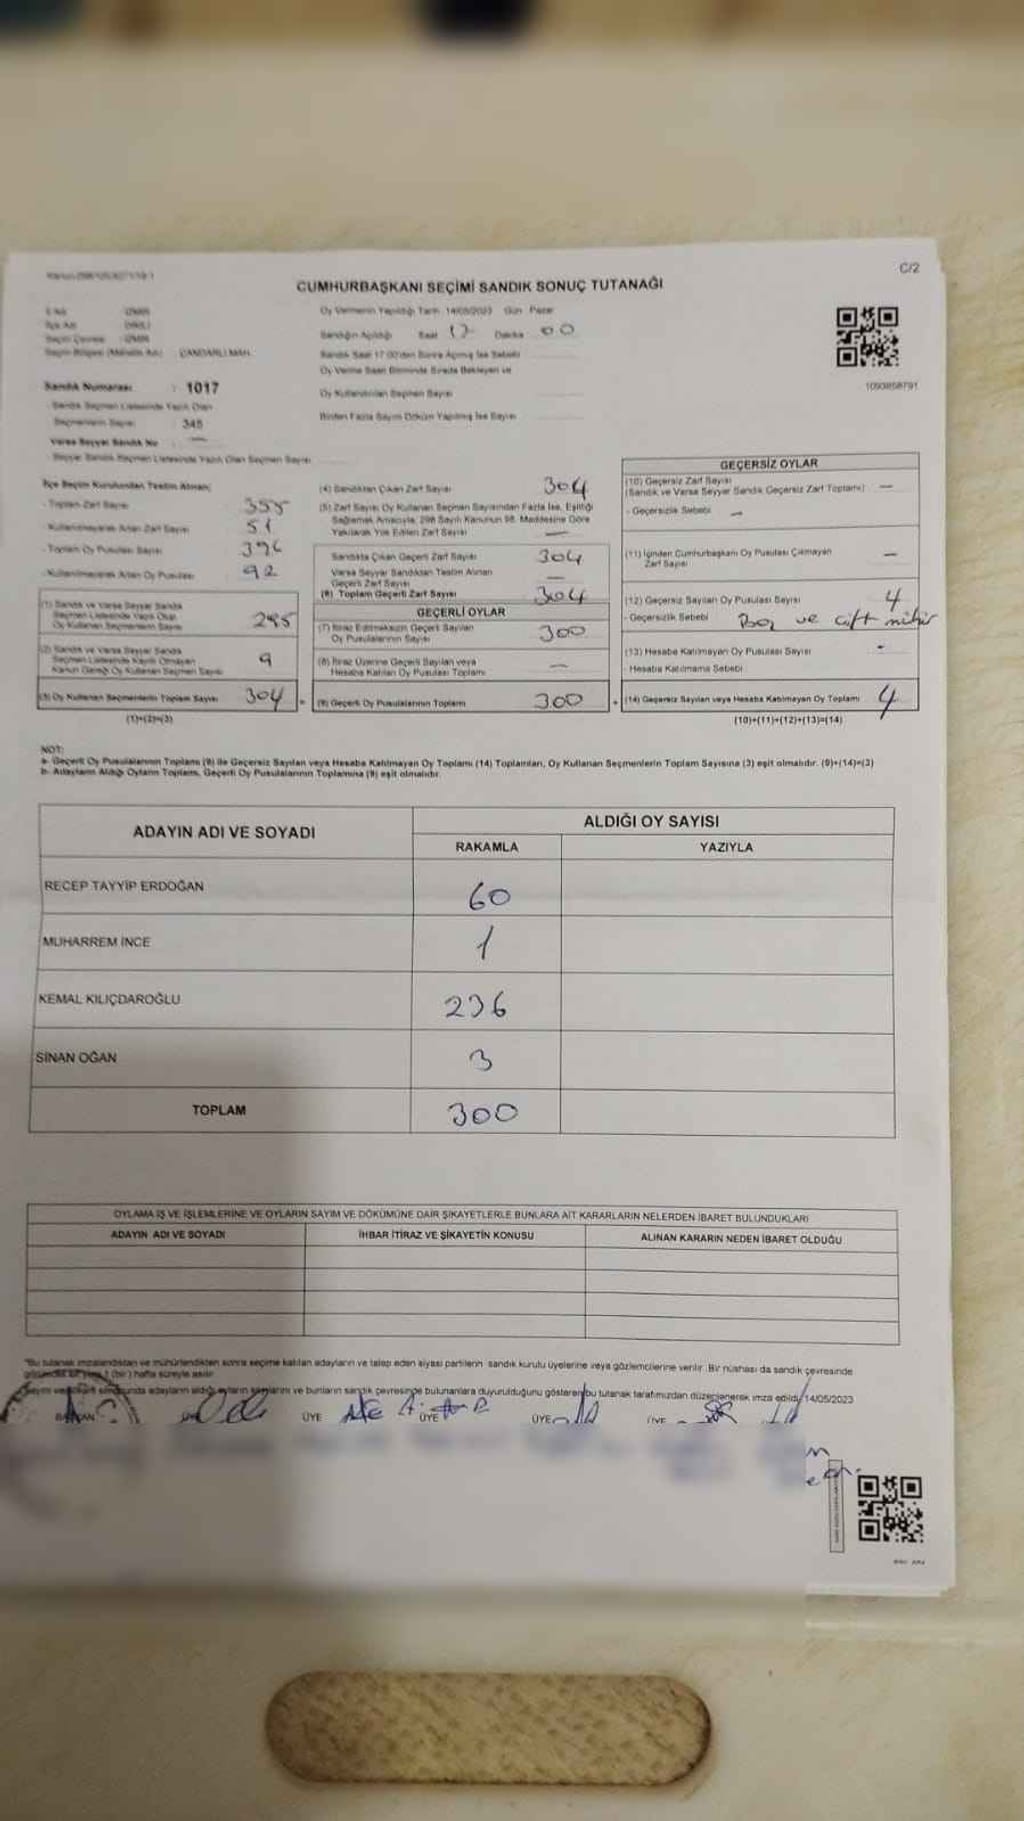 C/2
CUMHURBAŞKANI SEÇİMİ SANDIK SONUÇ TUTANAĞI
Oy Vermenin Yapıldığı Tarih 14/05/2023 Gün Pazar
Sandığın Açıldığı Saat 17 Dakika 00
Sandık Saat 17:00'den Sonra Açılmış İse Sebebi
Oy Verme Saati Bitiminde Sırada Bekleyen ve
Oy Kullandırılan Seçmen Sayısı
Birden Fazla Sayım Döküm Yapılmış İse Sayısı
İli Adı İZMİR
İlçe Adı DİKİLİ
Seçim Çevresi İZMİR
Seçim Bölgesi (Mahalle Adı) ÇANDARLI MAH.
Sandık Numarası : 1017
Sandık Seçmen Listesinde Yazılı Olan
Seçmenlerin Sayısı 345
Varsa Seyyar Sandık No —
Seyyar Sandık Seçmen Listesinde Yazılı Olan Seçmen Sayısı
1090858791
İlçe Seçim Kurulundan Teslim Alınan;
- Toplam Zarf Sayısı 355
- Kullanılmayarak Artan Zarf Sayısı 51
- Toplam Oy Pusulası Sayısı 396
- Kullanılmayarak Artan Oy Pusulası 92
(1) Sandık ve Varsa Seyyar Sandık
Seçmen Listesinde Yazılı Olup
Oy Kullanan Seçmenlerin Sayısı 295
(2) Sandık ve Varsa Seyyar Sandık
Seçmen Listesinde Kayıtlı Olmayan
Kanun Gereği Oy Kullanan Seçmen Sayısı 9
(3) Oy Kullanan Seçmenlerin Toplam Sayısı 304
(1)+(2)=(3)
(4) Sandıktan Çıkan Zarf Sayısı 304
(5) Zarf Sayısı Oy Kullanan Seçmen Sayısından Fazla İse, Eşitliği
Sağlamak Amacıyla, 298 Sayılı Kanunun 98. Maddesine Göre
Yakılarak Yok Edilen Zarf Sayısı —
Sandıkta Çıkan Geçerli Zarf Sayısı 304
Varsa Seyyar Sandıktan Teslim Alınan
Geçerli Zarf Sayısı —
(6) Toplam Geçerli Zarf Sayısı 304
GEÇERLİ OYLAR
(7) İtiraz Edilmeksizin Geçerli Sayılan
Oy Pusulalarının Sayısı 300
(8) İtiraz Üzerine Geçerli Sayılan veya
Hesaba Katılan Oy Pusulası Toplamı —
(9) Geçerli Oy Pusulalarının Toplamı 300
GEÇERSİZ OYLAR
(10) Geçersiz Zarf Sayısı
(Sandık ve Varsa Seyyar Sandık Geçersiz Zarf Toplamı) —
- Geçersizlik Sebebi —
(11) İçinden Cumhurbaşkanı Oy Pusulası Çıkmayan
Zarf Sayısı —
(12) Geçersiz Sayılan Oy Pusulası Sayısı 4
- Geçersizlik Sebebi Boş ve çift mühür
(13) Hesaba Katılmayan Oy Pusulası Sayısı -
Hesaba Katılmama Sebebi
(14) Geçersiz Sayılan veya Hesaba Katılmayan Oy Toplamı 4
(10)+(11)+(12)+(13)=(14)
NOT:
a- Geçerli Oy Pusulalarının Toplamı (9) ile Geçersiz Sayılan veya Hesaba Katılmayan Oy Toplamı (14) Toplamları, Oy Kullanan Seçmenlerin Toplam Sayısına (3) eşit olmalıdır. (9)+(14)=(3)
b- Adayların Aldığı Oyların Toplamı, Geçerli Oy Pusulalarının Toplamına (9) eşit olmalıdır.
ADAYIN ADI VE SOYADI
ALDIĞI OY SAYISI
RAKAMLA YAZIYLA
RECEP TAYYİP ERDOĞAN 60
MUHARREM İNCE 1
KEMAL KILIÇDAROĞLU 236
SİNAN OĞAN 3
TOPLAM 300
OYLAMA İŞ VE İŞLEMLERİNE VE OYLARIN SAYIM VE DÖKÜMÜNE DAİR ŞİKAYETLERLE BUNLARA AİT KARARLARIN NELERDEN İBARET BULUNDUKLARI
ADAYIN ADI VE SOYADI İHBAR İTİRAZ VE ŞİKAYETİN KONUSU ALINAN KARARIN NEDEN İBARET OLDUĞU
"Bu tutanak imzalandıktan ve mühürlendikten sonra seçime katılan adayların ve talep eden siyasi partilerin sandık kurulu üyelerine veya gözlemcilerine verilir. Bir nüshası da sandık çevresinde
(bir) hafta süreyle asılır.
adayların aldığı oyların sayılarını ve bunların sandık çevresinde bulunanlara duyurulduğunu gösteren bu tutanak tarafımızdan düzenlenerek imza edildi. 14/05/2023
BAŞKAN ÜYE ÜYE ÜYE ÜYE